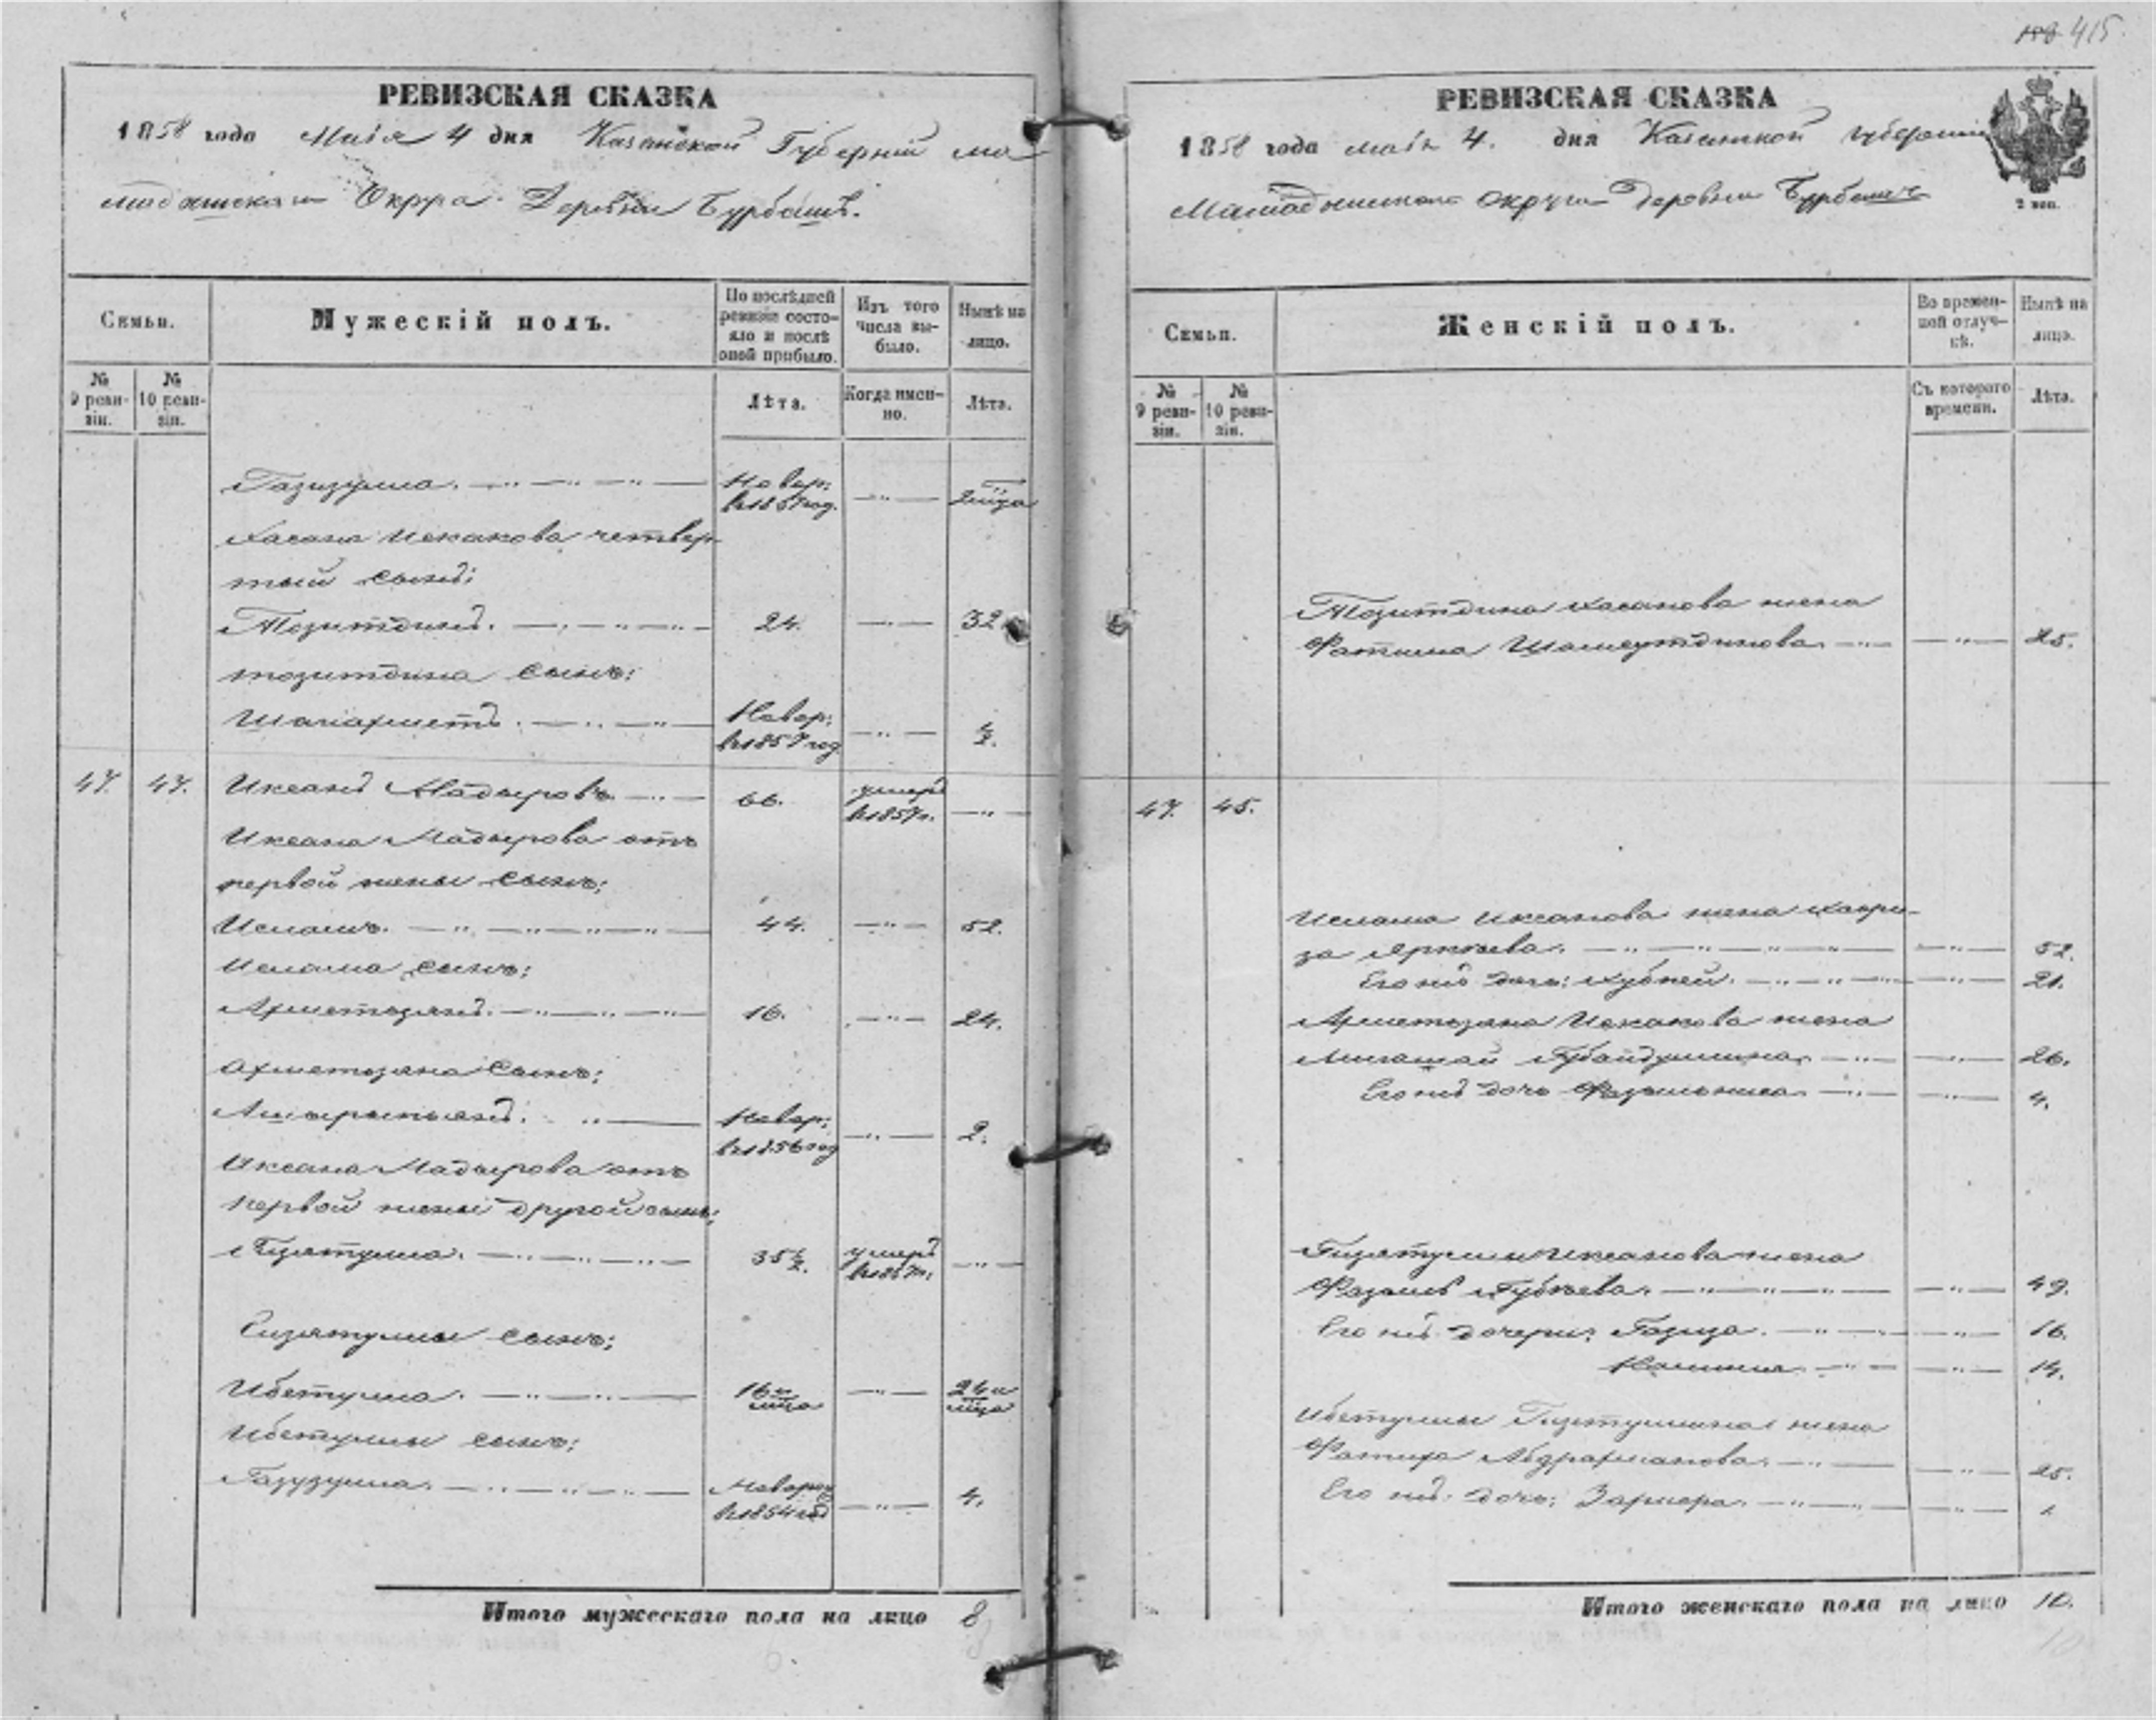 415
РЕВИЗСКАЯ СКАЗКА
1858 года Маія 4 дня Казанской Губерніи Ма
мадышскаго Округа Деревни Бурбашъ.
Семьи.
Мужескій полъ.
По послѣдней ревизіи состояло и послѣ оной прибыло.
Изъ того числа выбыло.
Нынѣ на лицо.
№ 9 ревизіи.
№ 10 ревизіи.
Лѣта.
Когда именно.
Лѣта.
Газизулла. Новор: в 1857 год.
Хасана Исхакова четвертый сынъ:
Тозитдинъ. 24. 32
тозитдина сынъ:
Шагіахметъ. Новор: в 1857 год ½.
47. 47. Иксанъ Мадыровъ 66. умеръ в 1857 г.
Иксана Мадырова отъ
первой жены сынъ:
Исламъ. 44. 52.
Ислама сынъ:
Ахметзянъ. 16. 24.
Ахметзяна сынъ:
Новор: в 1856 год 2.
Иксана Мадырова отъ
первой жены другой сынъ:
Гизятулла. 35½. умеръ в 1857 г.
Гизятуллы сынъ:
Ибетулла. 16 и м-ца 24 и м-ца
Ибетуллы сынъ:
Новорож в 1854 год 4.
Итого мужескаго пола на лицо 8
РЕВИЗСКАЯ СКАЗКА
1858 года маія 4. дня Казанской Губерніи
Мамадышскаго Округа Деревни Бурбашъ
2 коп.
Семьи.
Женскій полъ.
Во временной отлучкѣ.
Нынѣ на лицо.
№ 9 ревизіи.
№ 10 ревизіи.
Съ котораго времени.
Лѣта.
Тозитдина Хасанова жена
Фатима 25.
47. 45.
Ислама Иксанова жена
52.
Его же дочь: 21.
Ахметзяна Исхакова жена
26.
Его же дочь 4.
Гизятуллы Иксанова жена
49.
Его же дочери: Газиза. 16.
14.
Ибетуллы Гизятуллина жена
Фатиха Абдрахманова. 25.
Его же дочь:
Итого женскаго пола на лицо 10.